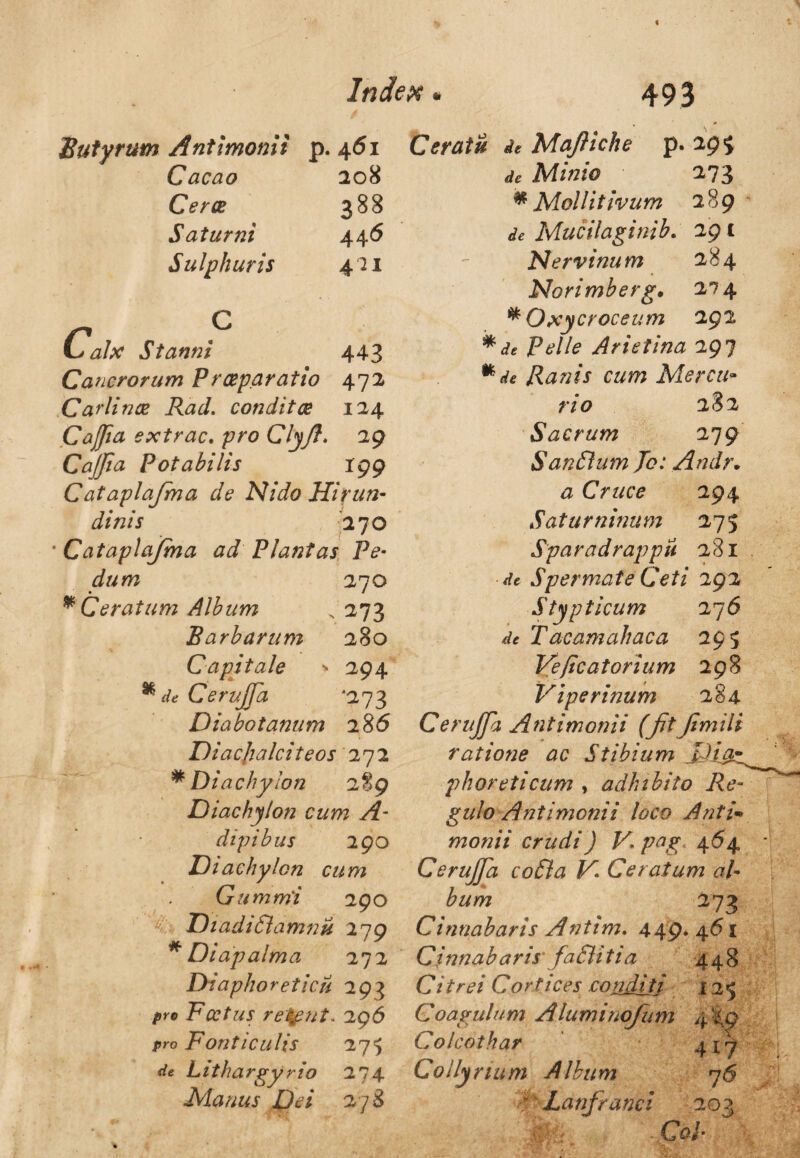 Index. 493
Butyrum Antimonii p. 461
Cacao 208
Ceræ 388
Saturni 446
Sulphuris 421
C
Calx Stanni 443
Cancrorum Præparatio 472
Carlinæ Rad. conditæ 124
Caſſia extrac. pro Clyſt. 29
Caſſia Potabilis 199
Cataplaſma de Nido Hirun-
dinis 270
Cataplaſma ad Plantas Pe-
dum 270
* Ceratum Album 273
Barbarum 280
Capitale 294
* de Ceruſſa 273
Diabotanum 286
Diachalciteos 272
* Diachylon 289
Diachylon cum A-
dipibus 290
Diachylon cum
Gummi 290
Diadictamnū 279
* Diapalma 272
Diaphoreticū 293
pro Fœtus retent. 296
pro Fonticulis 275
de Lithargyrio 274
Manus Dei 278
Ceratū de Maſtiche p. 295
de Minio 273
* Mollitivum 289
de Mucilaginib. 291
Nervinum 284
Norimberg. 274
* Oxycroceum 292
* de Pelle Arietina 297
* de Ranis cum Mercu-
rio 282
Sacrum 279
Sanctum Jo: Andr.
a Cruce 294
Saturninum 275
Sparadrappū 281
de Spermate Ceti 292
Stypticum 276
de Tacamahaca 295
Veſicatorium 298
Viperinum 284
Ceruſſa Antimonii (fit ſimili
ratione ac Stibium Dia-
phoreticum, adhibito Re-
gulo Antimonii loco Anti-
monii crudi) V. pag. 464
Ceruſſa cocta V. Ceratum al-
bum 273
Cinnabaris Antim. 449. 461
Cinnabaris factitia 448
Citrei Cortices conditi 125
Coagulum Aluminoſum 489
Colcothar 417
Collyrium Album 76
Lanfranci 203
Col-